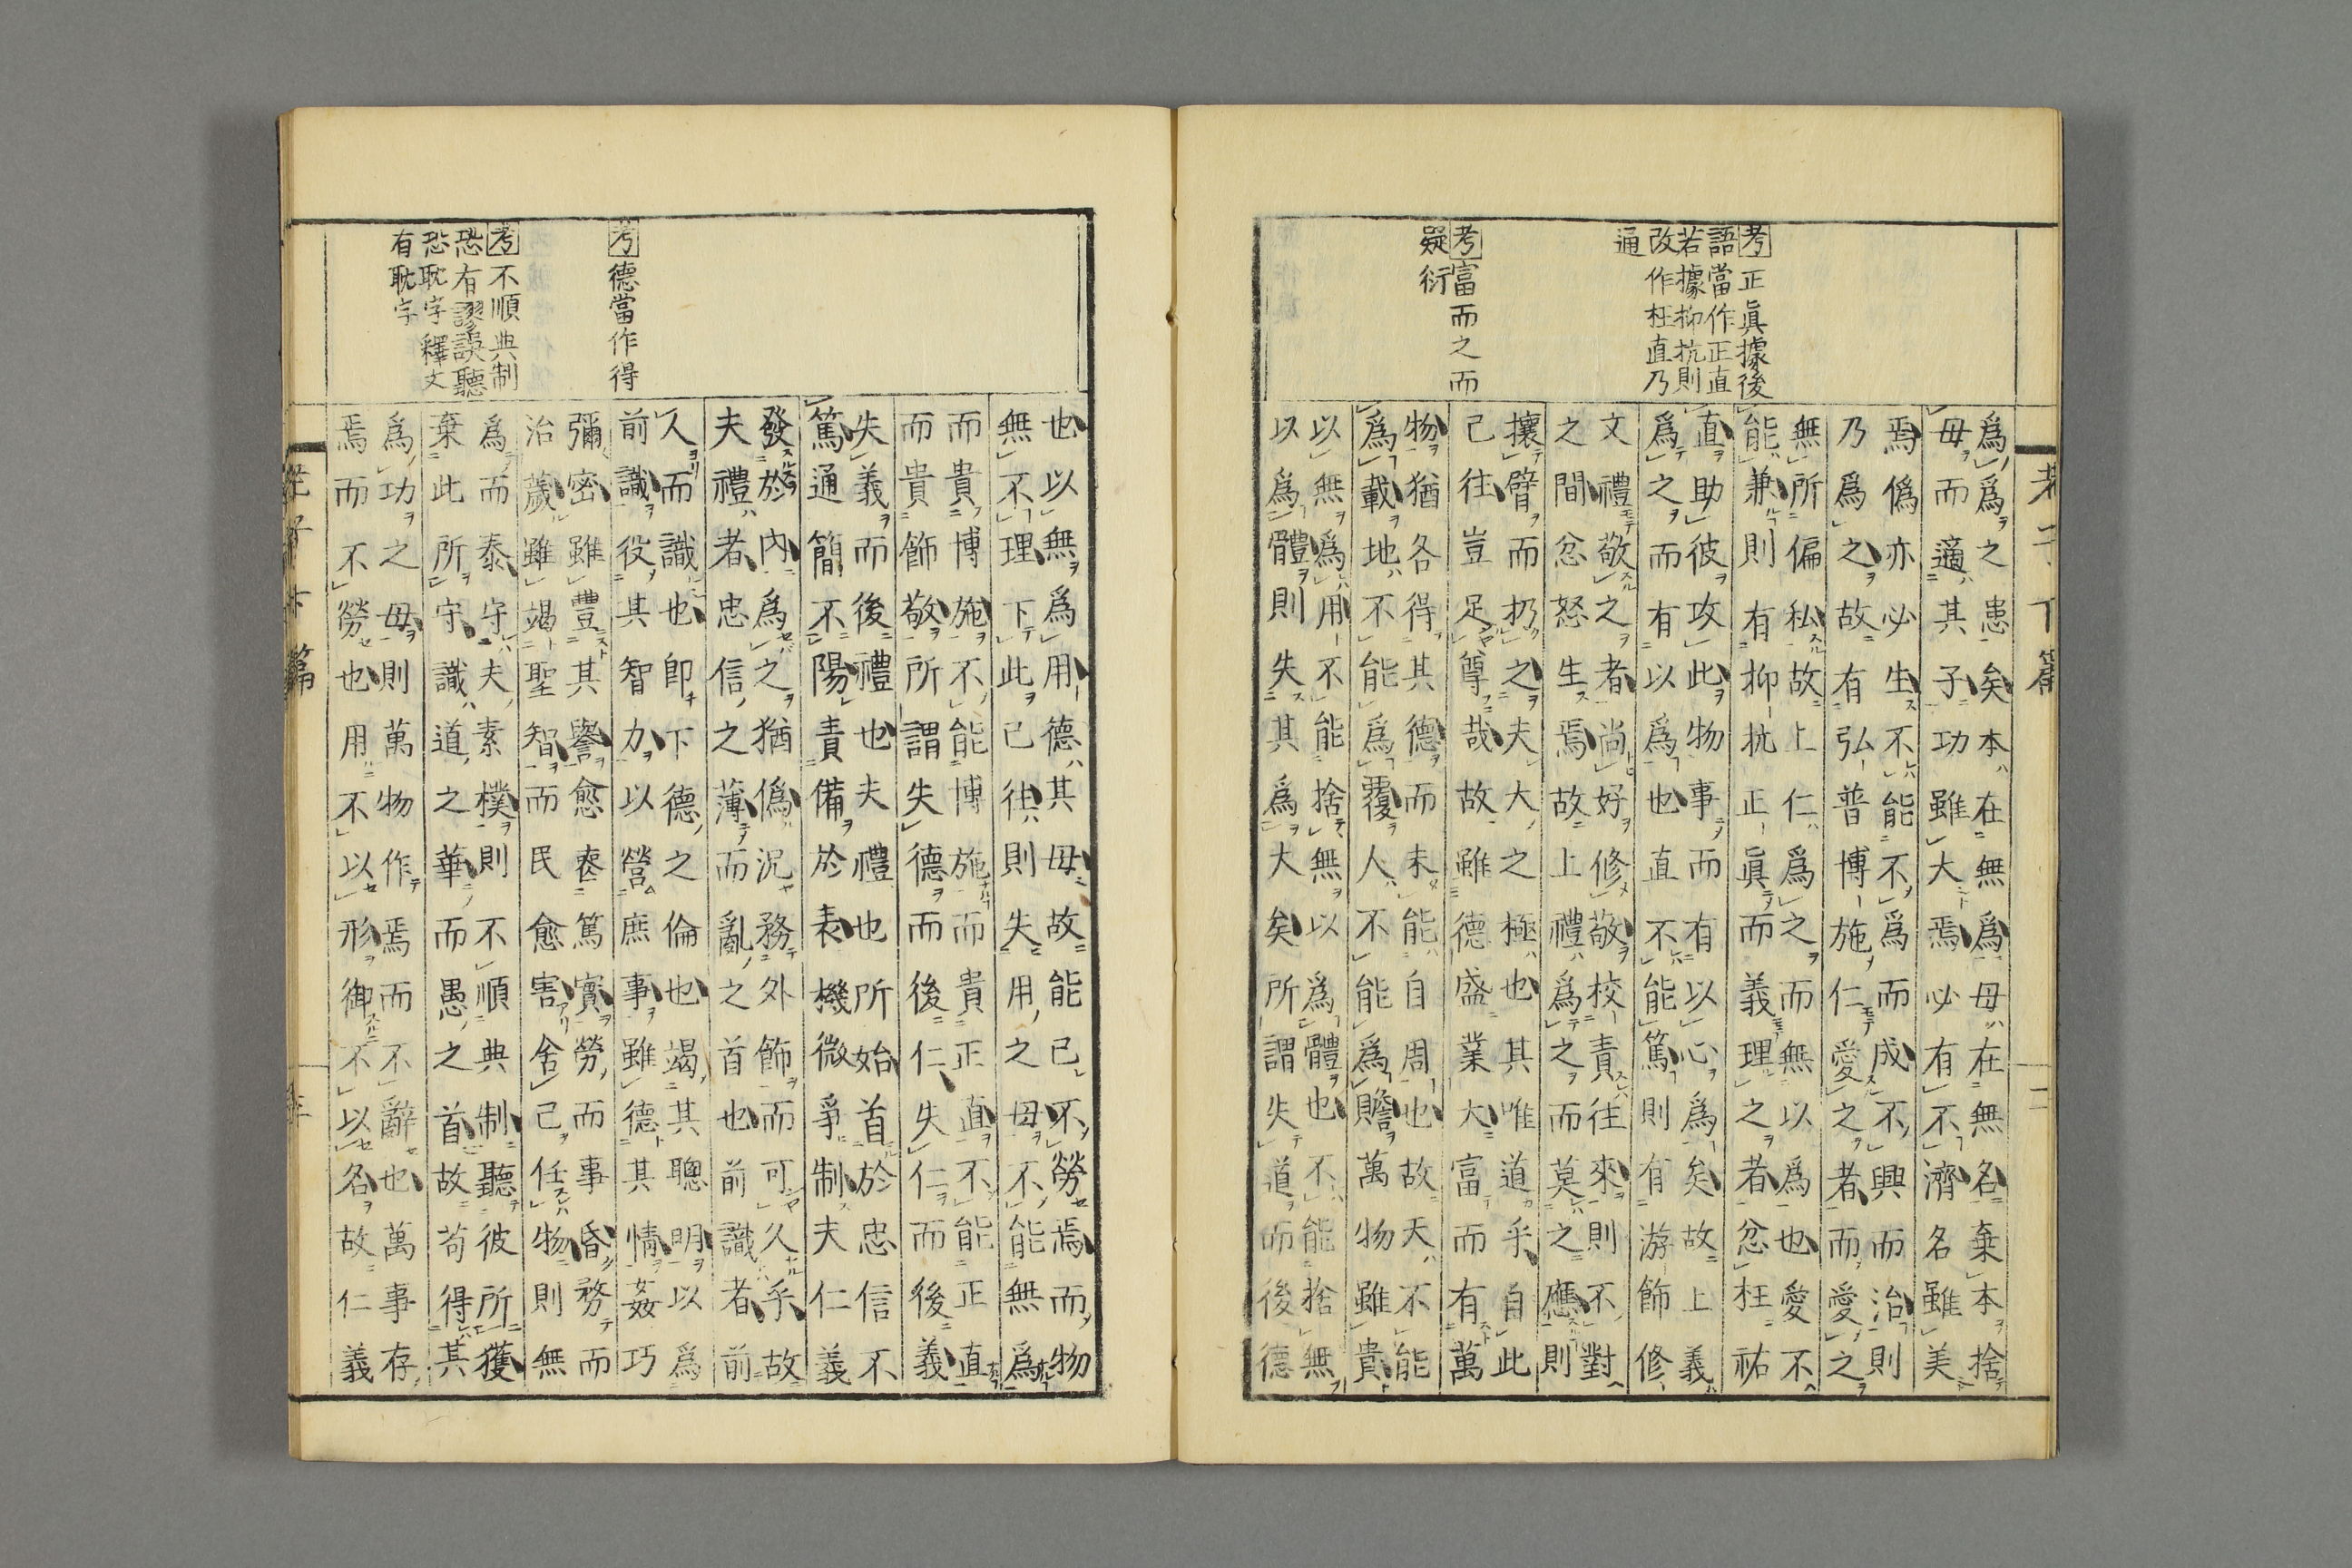 老子下篇
二
考正眞據後
語當作正直
若據抑抗則
改作枉直乃
通
考富而之而
疑衍
爲爲之患矣本在無爲母在無名棄本捨
母而適其子功雖大焉必有不濟名雖美
焉僞亦必生不能不爲而成不興而治則
乃爲之故有弘普博施仁愛之者而愛之
無所偏私故上仁爲之而無以爲也愛不
能兼則有抑抗正眞而義理之者忿枉祐
直助彼攻此物事而有以心爲矣故上義
爲之而有以爲也直不能篤則有游飾修
文禮敬之者尚好修敬校責往來則不對
之間忿怒生焉故上禮爲之而莫之應則
攘臂而扔之夫大之極也其唯道乎自此
己往豈足尊哉故雖德盛業大富而有萬
物猶各得其德而未能自周也故天不能
爲載地不能爲覆人不能爲贍萬物雖貴
以無爲用不能捨無以爲體也不能捨無
以爲體則失其爲大矣所謂失道而後德
考德當作得
考不順典制
恐有謬誤聽
恐耽字釋文
有耽字
也以無爲用德其母故能己不勞焉而物
無不理下此己往則失用之母不能無爲
而貴博施不能博施而貴正直不能正直
而貴飾敬所謂失德而後仁失仁而後義
失義而後禮也夫禮也所始首於忠信不
篤通簡不陽責備於表機微爭制夫仁義
發於內爲之猶僞況務外飾而可久乎故
夫禮者忠信之薄而亂之首也前識者前
人而識也卽下德之倫也竭其聰明以爲
前識役其智力以營庶事雖德其情姦巧
彌密雖豐其譽愈喪篤實勞而事昏務而
治薉雖竭聖智而民愈害舍己任物則無
爲而泰守夫素樸則不順典制聽彼所獲
棄此所守識道之華而愚之首故苟得其
爲功之母則萬物作焉而不辭也萬事存
焉而不勞也用不以形御不以名故仁義